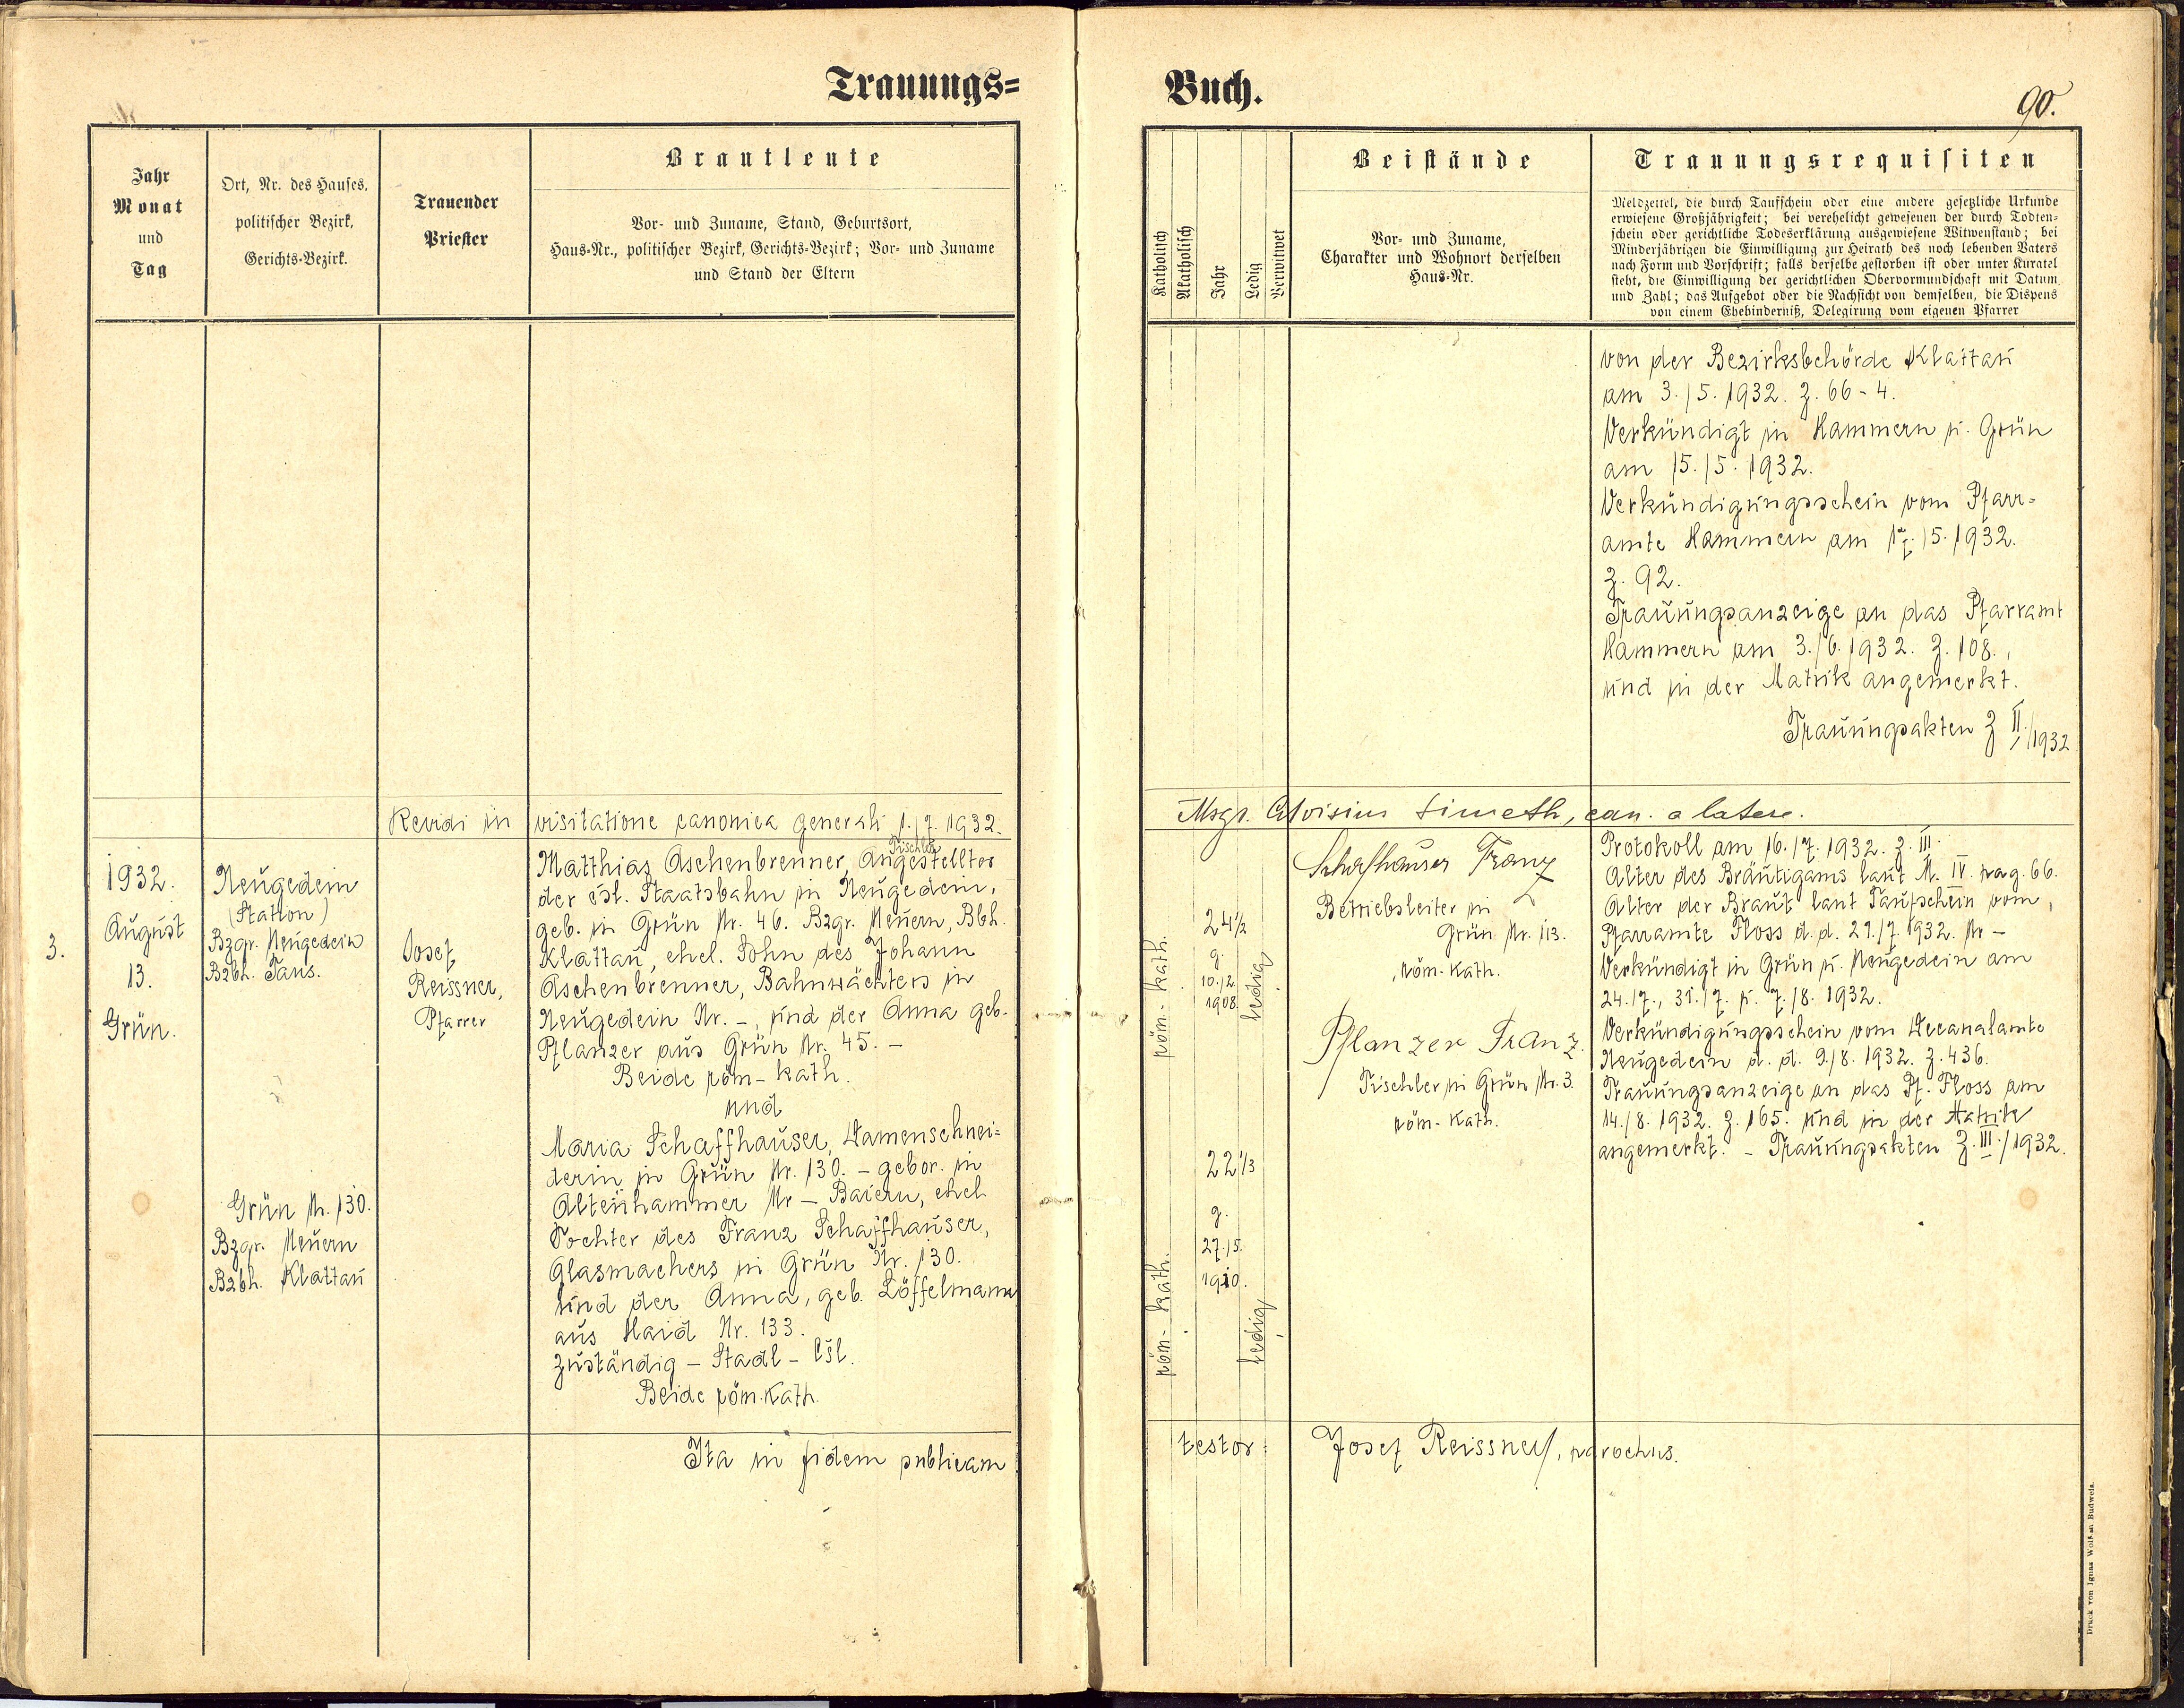 Trauungs=
Jahr
Monat
und
Tag
Ort, Nr. des Hauses,
politischer Bezirk,
Gerichts-Bezirk.
Trauender
Priester
Brautleute
Vor- und Zuname, Stand, Geburtsort,
Haus-Nr., politischer Bezirk, Gerichts-Bezirk; Vor- und Zuname
und Stand der Eltern
Revidi in visitatione canonica generali 1./7. 1932.
3.
1932.
August
13.
Grün.
Neugedein
(Station)
Bzgr. Neugedein
Bzbh. Taus.
Grün Nr. 130.
Bzgr. Neuern
Bzbh. Klattau
Josef
Reissner,
Pfarrer
Tischler
Matthias Aschenbrenner, Angestellter
der čsl. Staatsbahn in Neugedein,
geb. in Grün Nr. 46. Bzgr. Neuern, Bbh.
Klattau, ehel. Sohn des Johann
Aschenbrenner, Bahnwächters in
Neugedein Nr. -, und der Anna geb.
Pflanzer aus Grün Nr. 45. -
Beide röm-kath.
und
Maria Schaffhauser, Damenschnei=
derin in Grün Nr. 130. - gebor. in
Altenhammer Nr - Baiern, ehel
Tochter des Franz Schaffhauser,
Glasmachers in Grün Nr. 130.
und der Anna, geb. Löffelmann
aus Haid Nr. 133.
zuständig - Stadl - čsl.
Beide röm. kath.
Ita in fidem publicam
Buch.
90.
Katholisch
Akatholisch
Jahr
Ledig
Verwitwet
Beistände
Vor- und Zuname,
Charakter und Wohnort derselben
Haus-Nr.
Trauungsrequisiten
Meldzettel, die durch Taufschein oder eine andere gesetzliche Urkunde
erwiesene Großjährigkeit; bei verehelicht gewesenen der durch Todten-
schein oder gerichtliche Todeserklärung ausgewiesene Witwenstand; bei
Minderjährigen die Einwilligung zur Heirath des noch lebenden Vaters
nach Form und Vorschrift; falls derselbe gestorben ist oder unter Kuratel
steht, die Einwilligung der gerichtlichen Obervormundschaft mit Datum
und Zahl; das Aufgebot oder die Nachsicht von demselben, die Dispens
von einem Ehehinderniß, Delegirung vom eigenen Pfarrer
von der Bezirksbehörde Klattau
am 3./5. 1932. Z. 66-4.
Verkündigt in Hammern u. Grün
am 15./5. 1932.
Verkündigungsschein vom Pfarr=
amte Hammern am 17./5. 1932.
Z. 92.
Trauungsanzeige an das Pfarramt
Hammern am 3./6. 1932. Z. 108.,
und in der Matrik angemerkt.
Trauungsakten Z II./1932
Msgr. Aloisius Simeth, can. a latere.
röm-kath.
24 1/2
g.
10./2.
1908.
ledig
röm-kath.
22 1/3
g.
27./5.
1910.
ledig
Schafhauser Franz
Betriebsleiter in
Grün Nr. 113.
röm-kath.
Pflanzer Franz
Tischler in Grün Nr. 3.
röm-kath.
Protokoll am 16./7. 1932. Z. III.
Alter des Bräutigams laut M. IV. pag. 66.
Alter der Braut laut Taufschein vom
Pfarramte Floss d. d. 21./7. 1932. Nr -
Verkündigt in Grün u. Neugedein am
24./7., 31./7. u. 7./8. 1932.
Verkündigungsschein vom Decanalamte
Neugedein d. d. 9./8. 1932. Z. 436.
Trauungsanzeige an das Pf. Floss am
14./8. 1932. Z. 165. und in der Matrik
angemerkt. - Trauungsakten Z. III./1932.
testor: Josef Reissner, parochus.
Druck von Ignaz Wolf in Budweis.